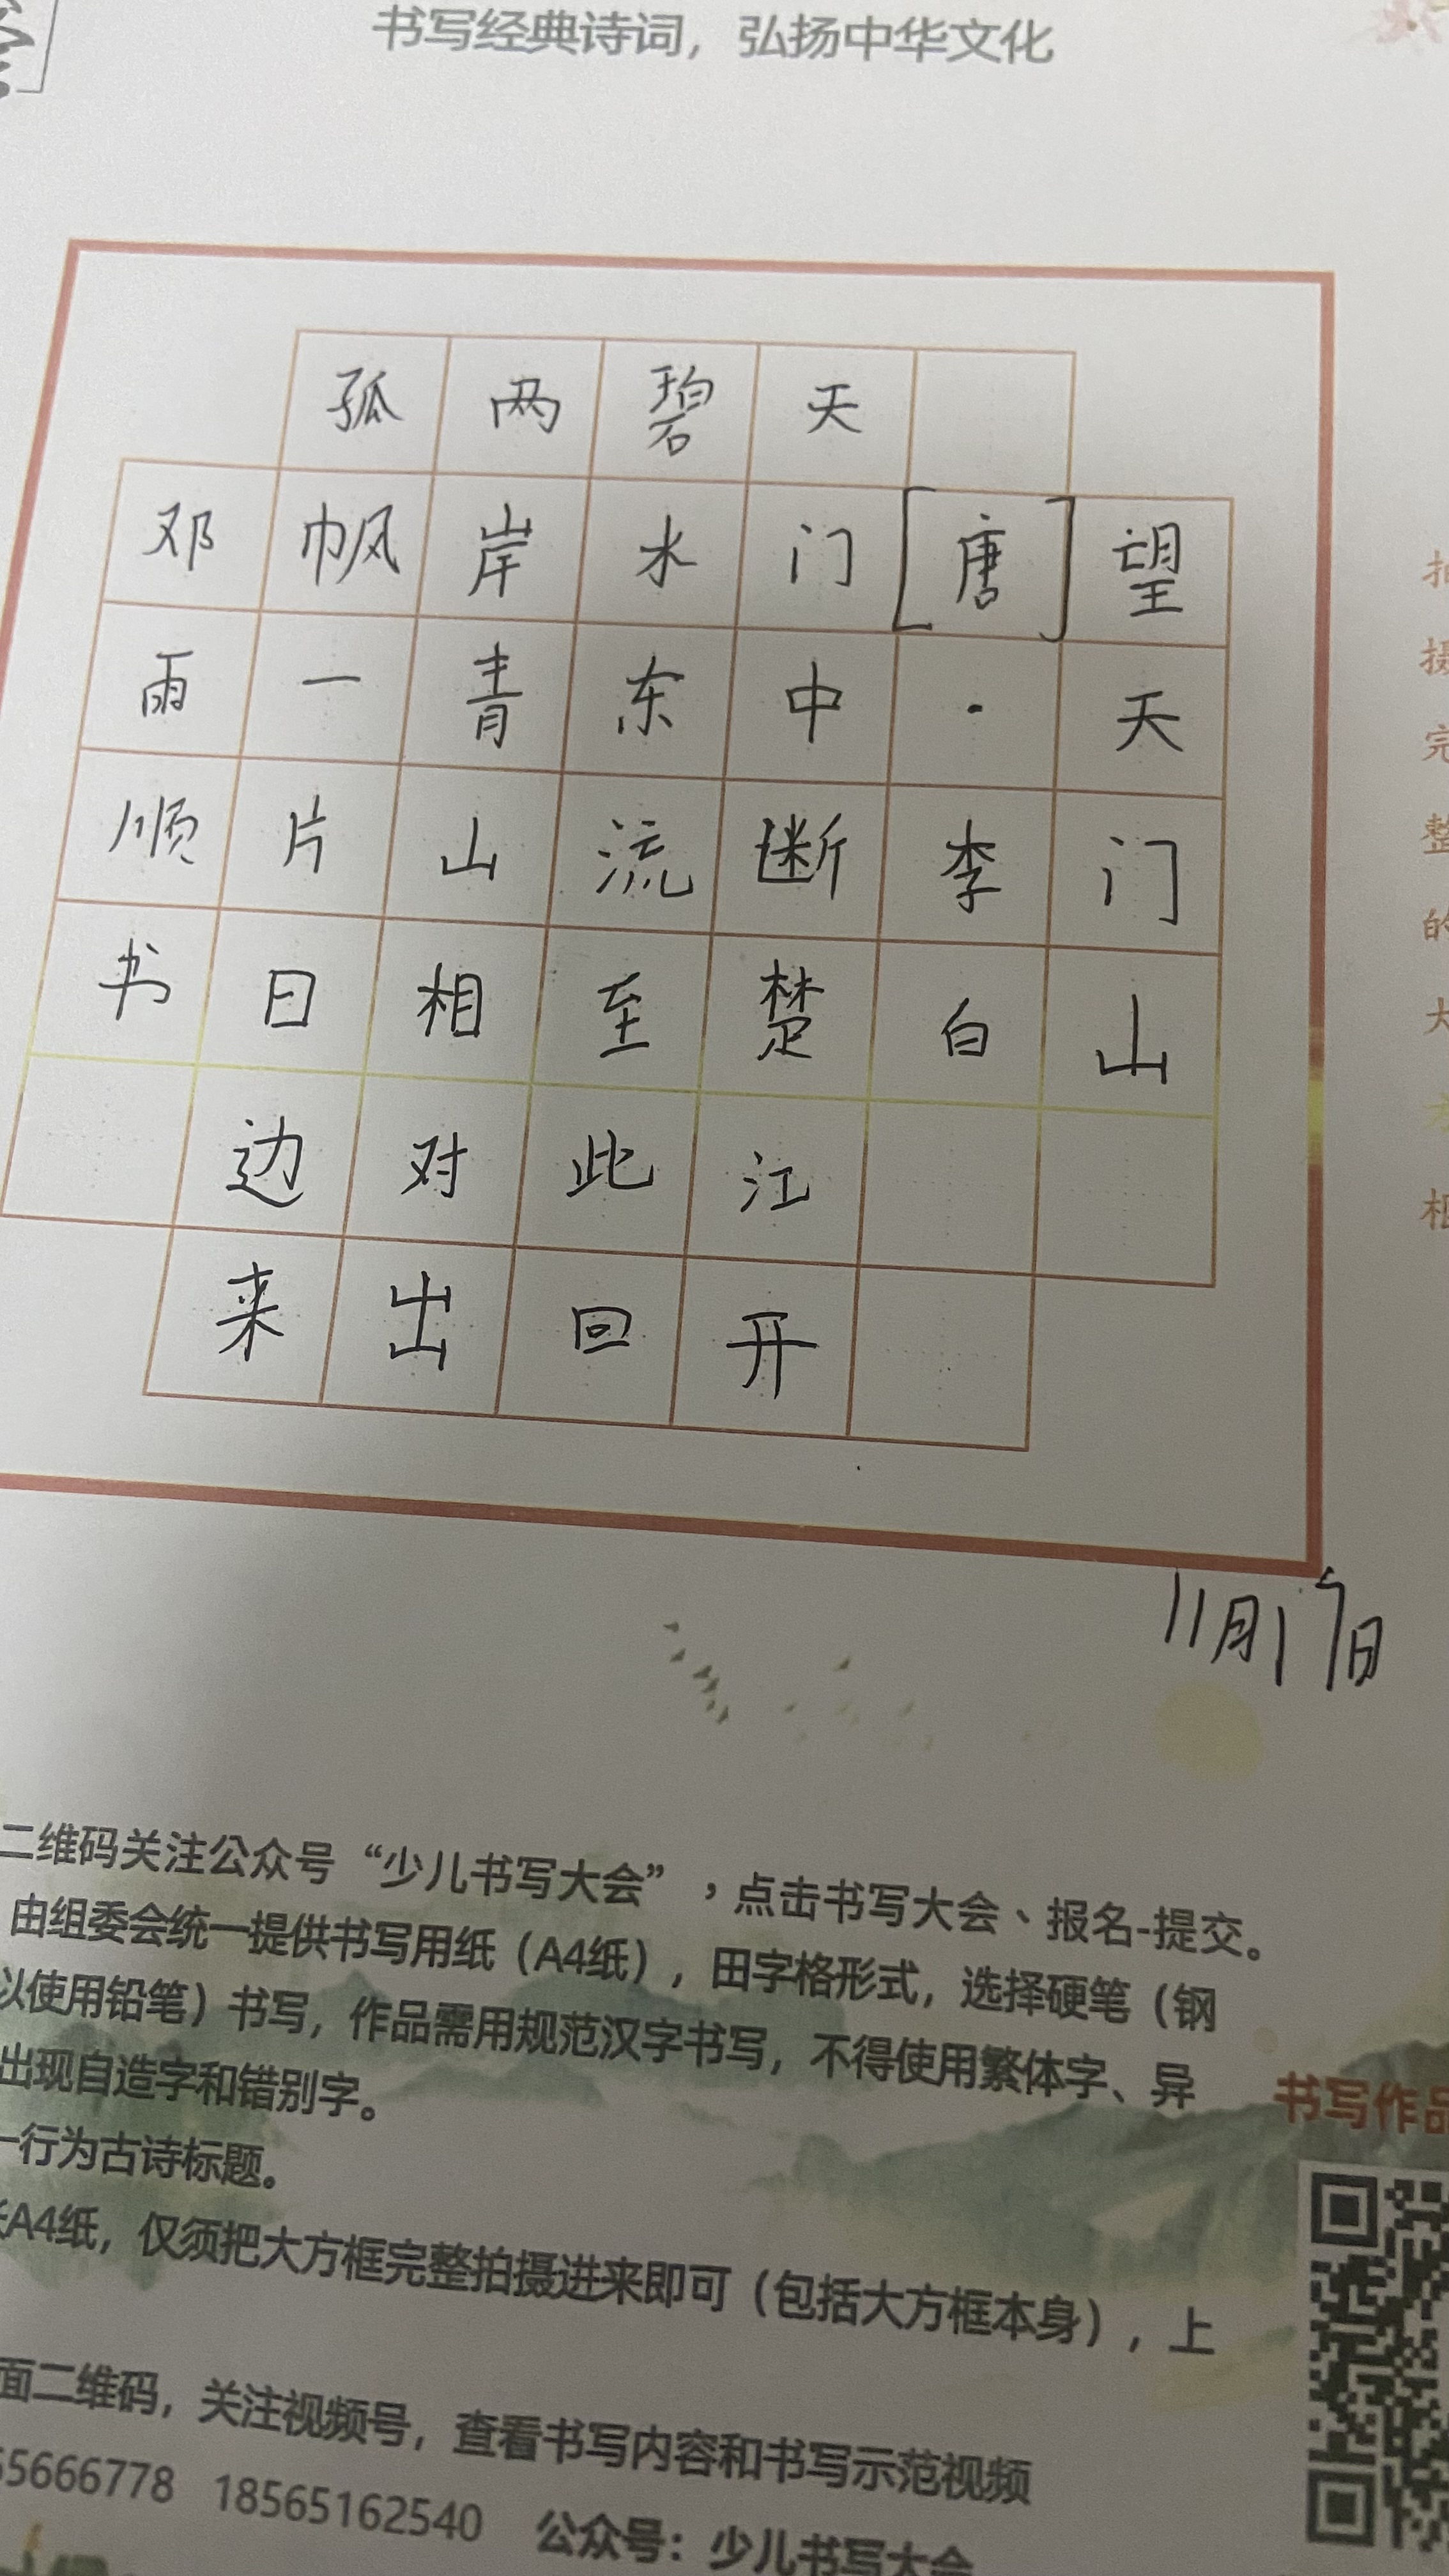 书写经典诗词，弘扬中华文化
望天门山
[唐]·李白
天门中断楚江开
碧水东流至此回
两岸青山相对出
孤帆一片日边来
邓雨顺书
11月17日
二维码关注公众号“少儿书写大会”，点击书写大会、报名-提交。
由组委会统一提供书写用纸（A4纸），田字格形式，选择硬笔（钢
以使用铅笔）书写，作品需用规范汉字书写，不得使用繁体字、异
出现自造字和错别字。
一行为古诗标题。
A4纸，仅须把大方框完整拍摄进来即可（包括大方框本身），上
面二维码，关注视频号，查看书写内容和书写示范视频
55666778 18565162540 公众号：少儿书写大会
摄完整的大
书写作品